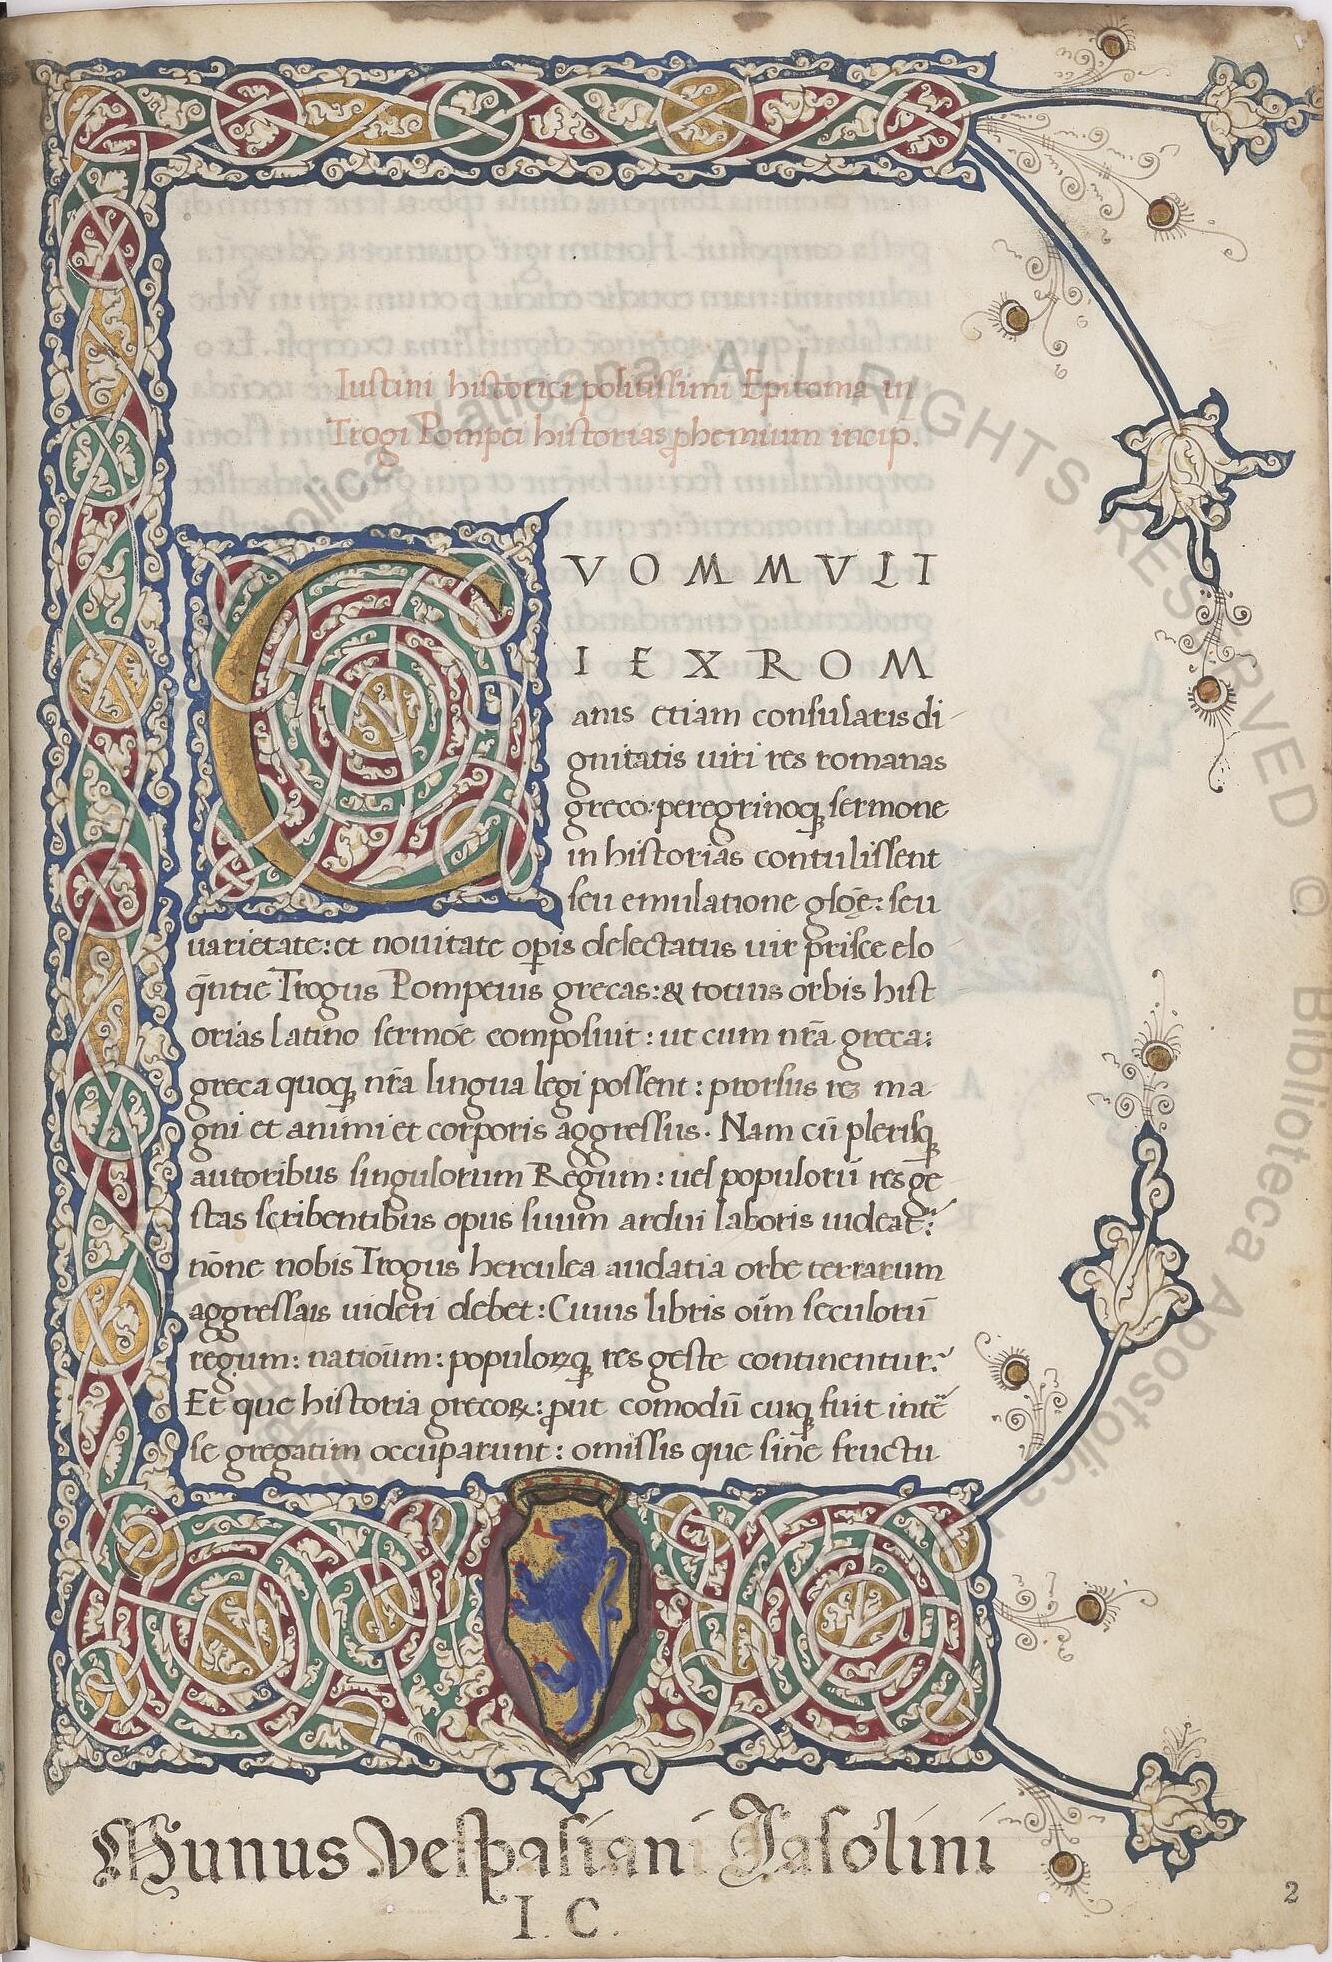 Iustini historici politissimi Epitoma in
Trogi Pompei historias ꝓhemium incip.
C VOM MVLT
I EX ROM
anis etiam consularis di
gnitatis uiri res romanas
greco: peregrinoqꝫ sermone
in historias contulissent
seu emulatione glo᷒e: seu
uarietate: et nouitate oꝑis delectatus uir prisce elo
q̄ntie Trogus Pompeius grecas: & totius orbis hist
orias latino sermōe composuit: ut cum nr̄a greca:
greca quoqꝫ nr̄a lingua legi possent: prorsus rez ma
gni et animi et corporis aggressus. Nam cū plerisqꝫ
autoribus singulorum Regum: uel populorū res ge
stas scribentibus opus suum ardui laboris uideat᷑:
nōne nobis Trogus herculea audatia orbe terrarum
aggressus uideri debet: Cuius libris oīm seculorū
regum: natioūm: populorꝫqꝫ res geste continentur:
Et que historia grecoꝝ: ꝓut comodū cuiqꝫ fuit inte᷒
se gregatim occuparunt: omissis que sine fructu
Munus Vespasiani Jasolini
I. C.
2
© Biblioteca Apostolica Vaticana ALL RIGHTS RESERVED